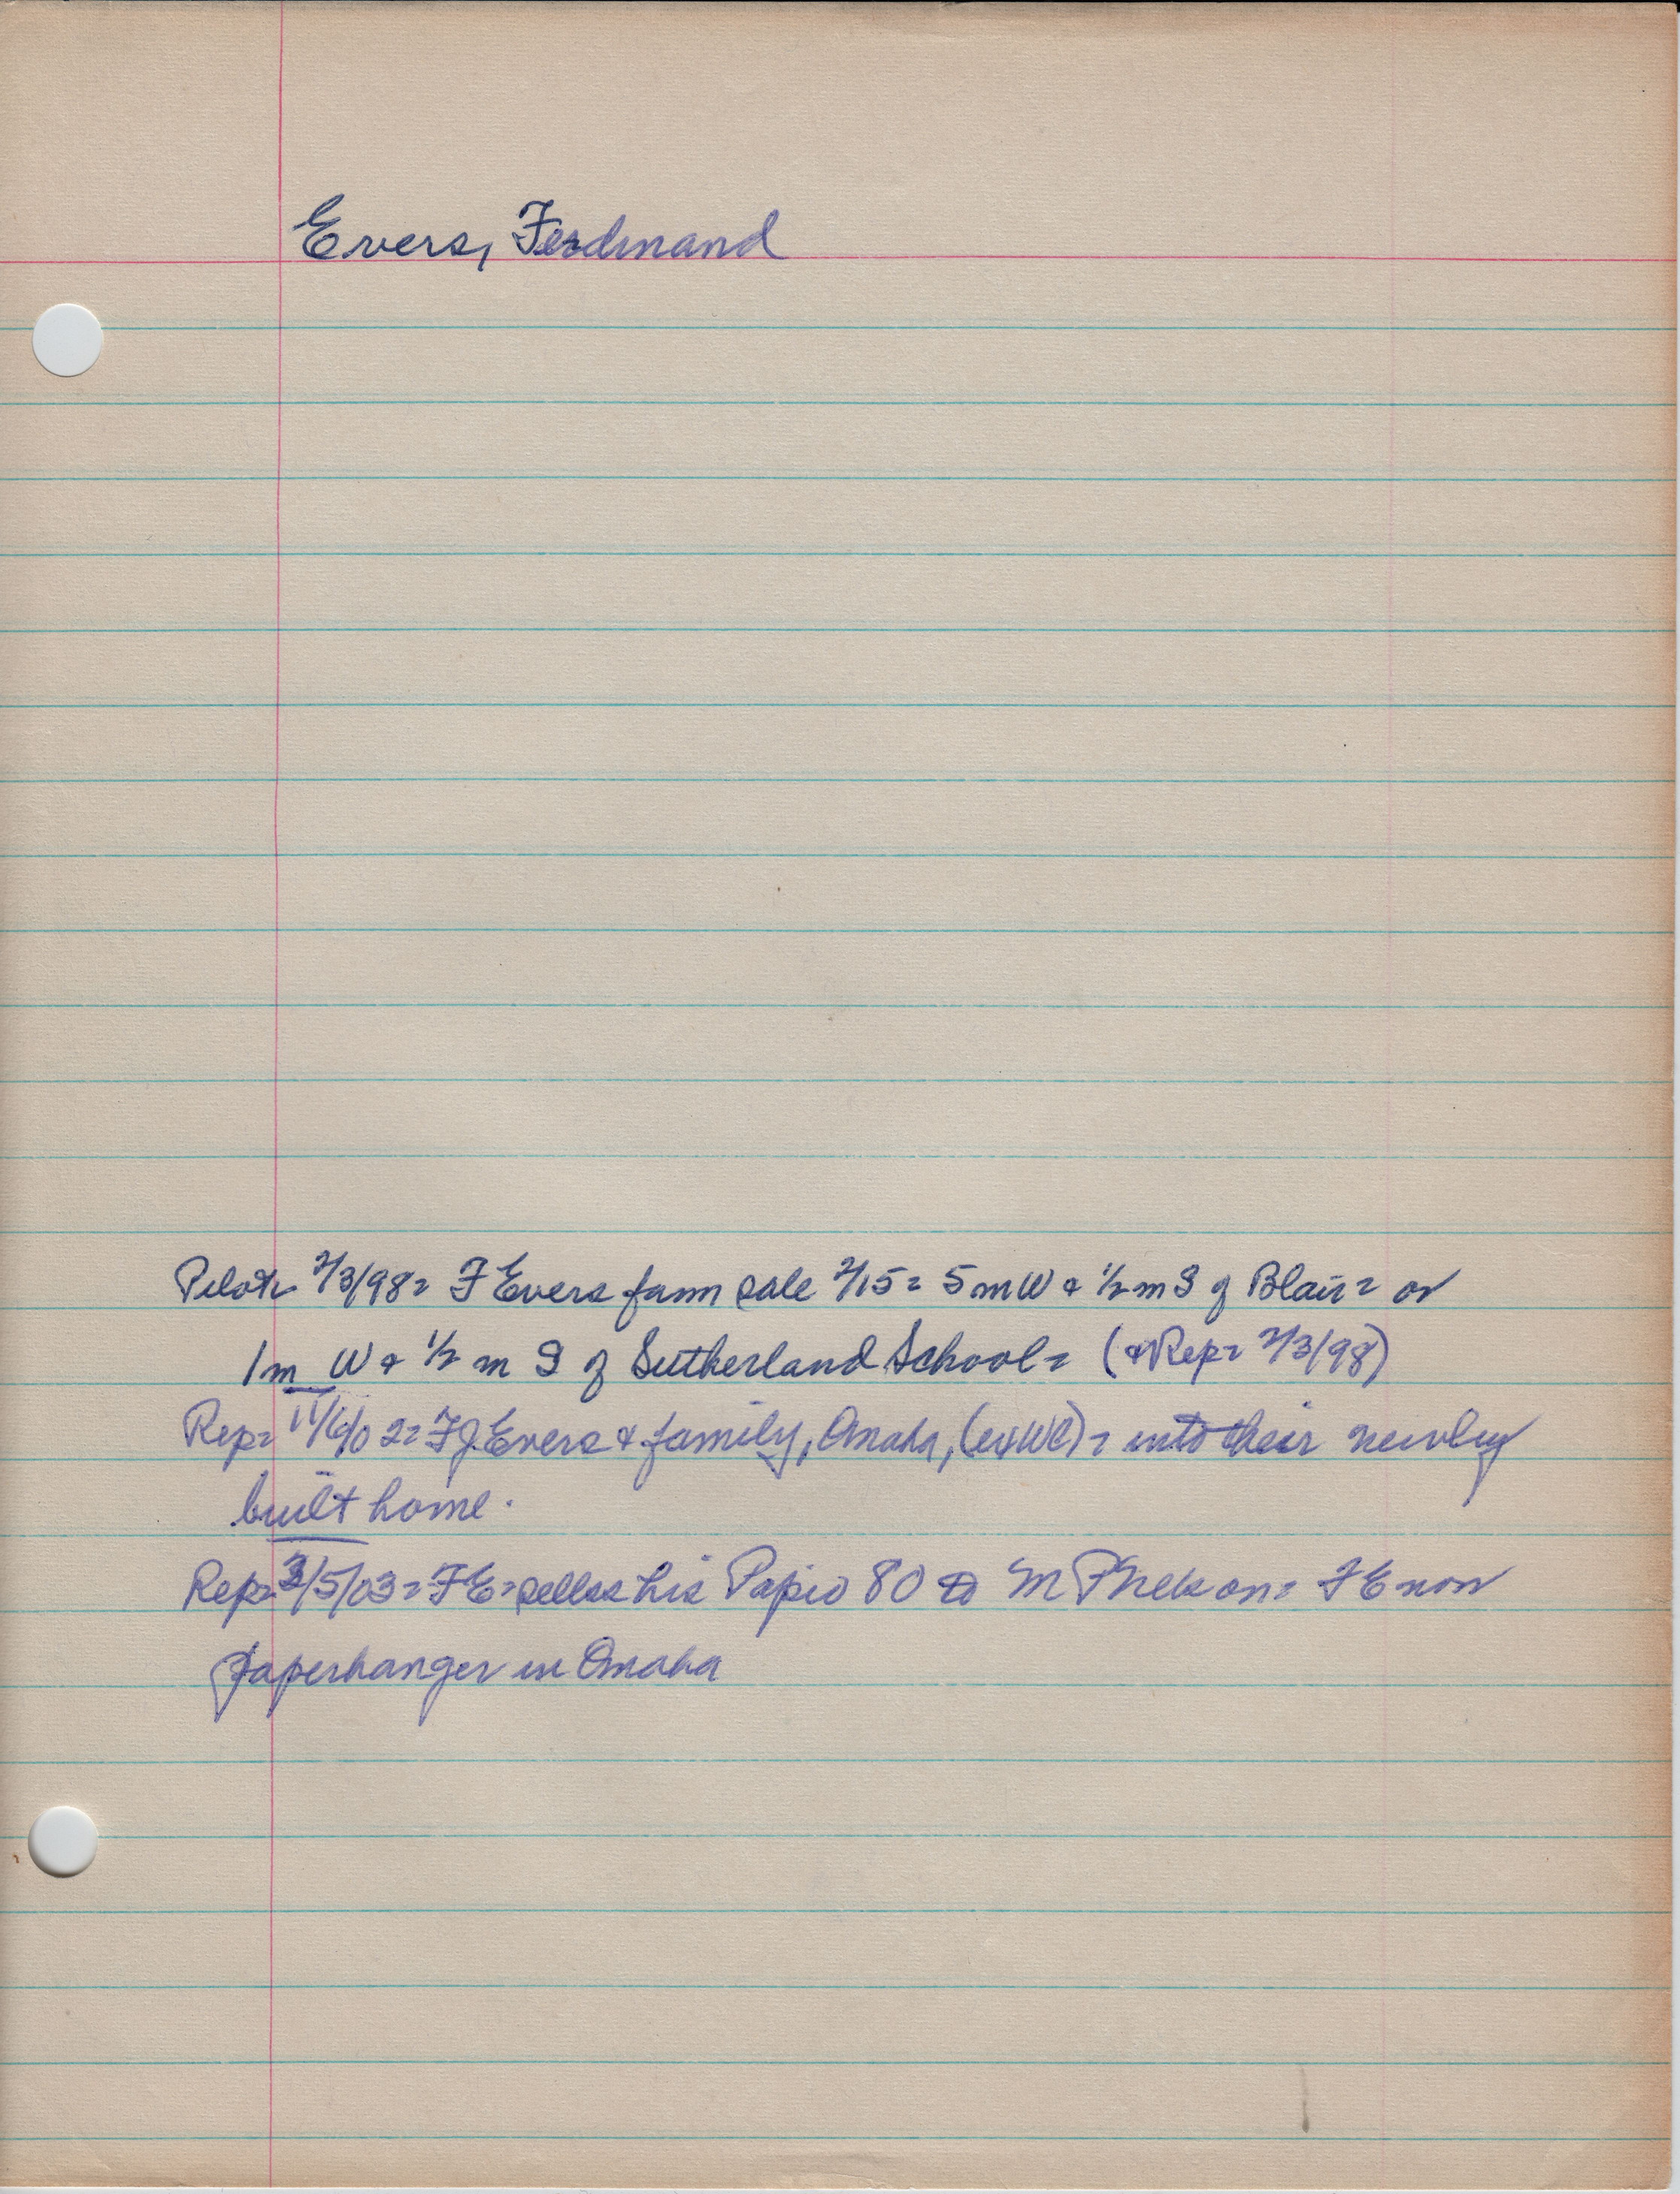 Evers, Ferdinand
Pilot= 2/3/98= F Evers farm sale 2/15= 5 m W & 1/2 m S of Blair= or
1 m W & 1/2 m S of Sutherland School= (& Rep= 2/3/98)
Rep= 11/6/02= FJ Evers & family, Omaha, (exWC)= into their newly
built home.
Rep= 3/5/03= FE= sells his Papio 80 to M P Nelson= FE now
paperhanger in Omaha